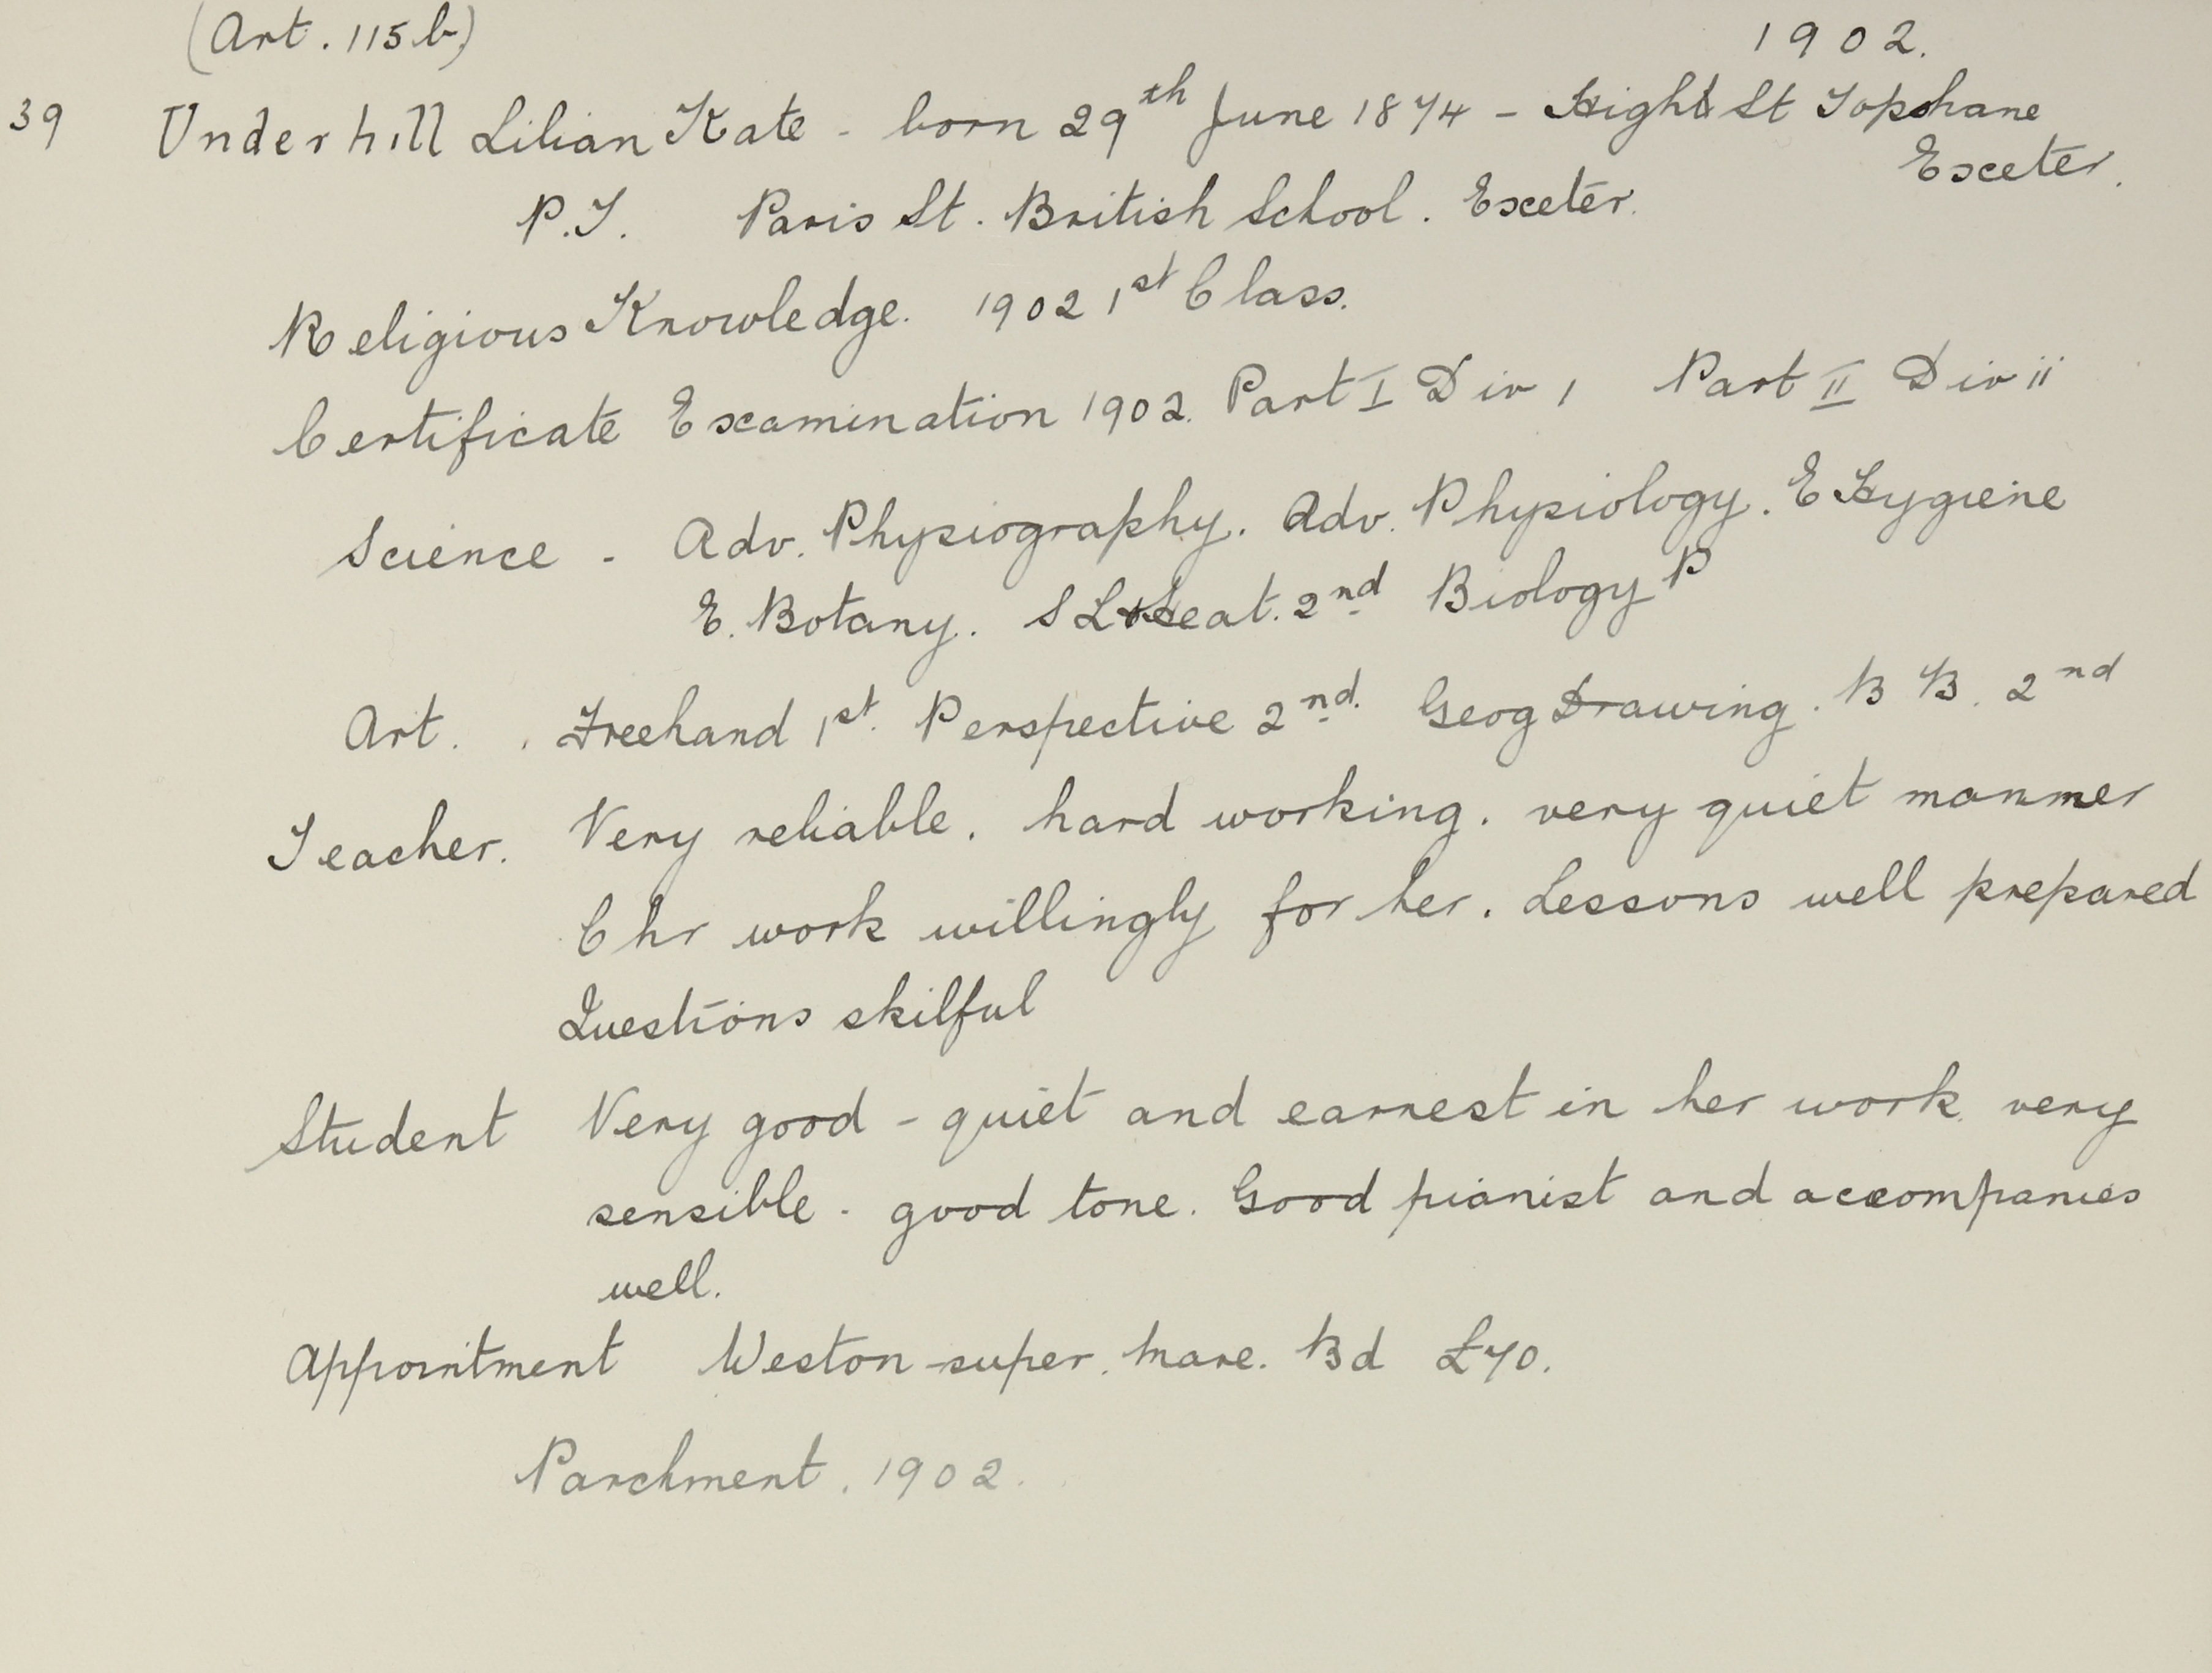 (Art. 115b) 1902.
39 Underhill Lilian Kate - born 29th June 1874 - High St Topshane
Exeter.
P.T. Paris St. British School. Exeter.
Religious Knowledge. 1902 1st Class.
Certificate Examination 1902. Part I Div 1 Part II Div ii
Science - Adv. Physiography. Adv. Physiology. E Hygiene
E. Botany. S L & Heat. 2nd Biology P
Art. . Freehand 1st. Perspective 2nd. Geog Drawing. B B. 2nd
Teacher. Very reliable. hard working. very quiet manner
Chr work willingly for her. Lessons well prepared
Questions skilful
Student Very good - quiet and earnest in her work very
sensible - good tone. Good pianist and accompanies
well.
Appointment Weston-super. Mare. Bd £70.
Parchment. 1902.